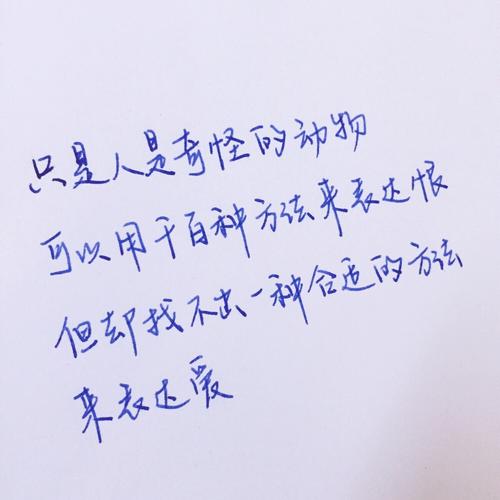 只是人是奇怪的动物
可以用千百种方法来表达恨
但却找不出一种合适的方法
来表达爱